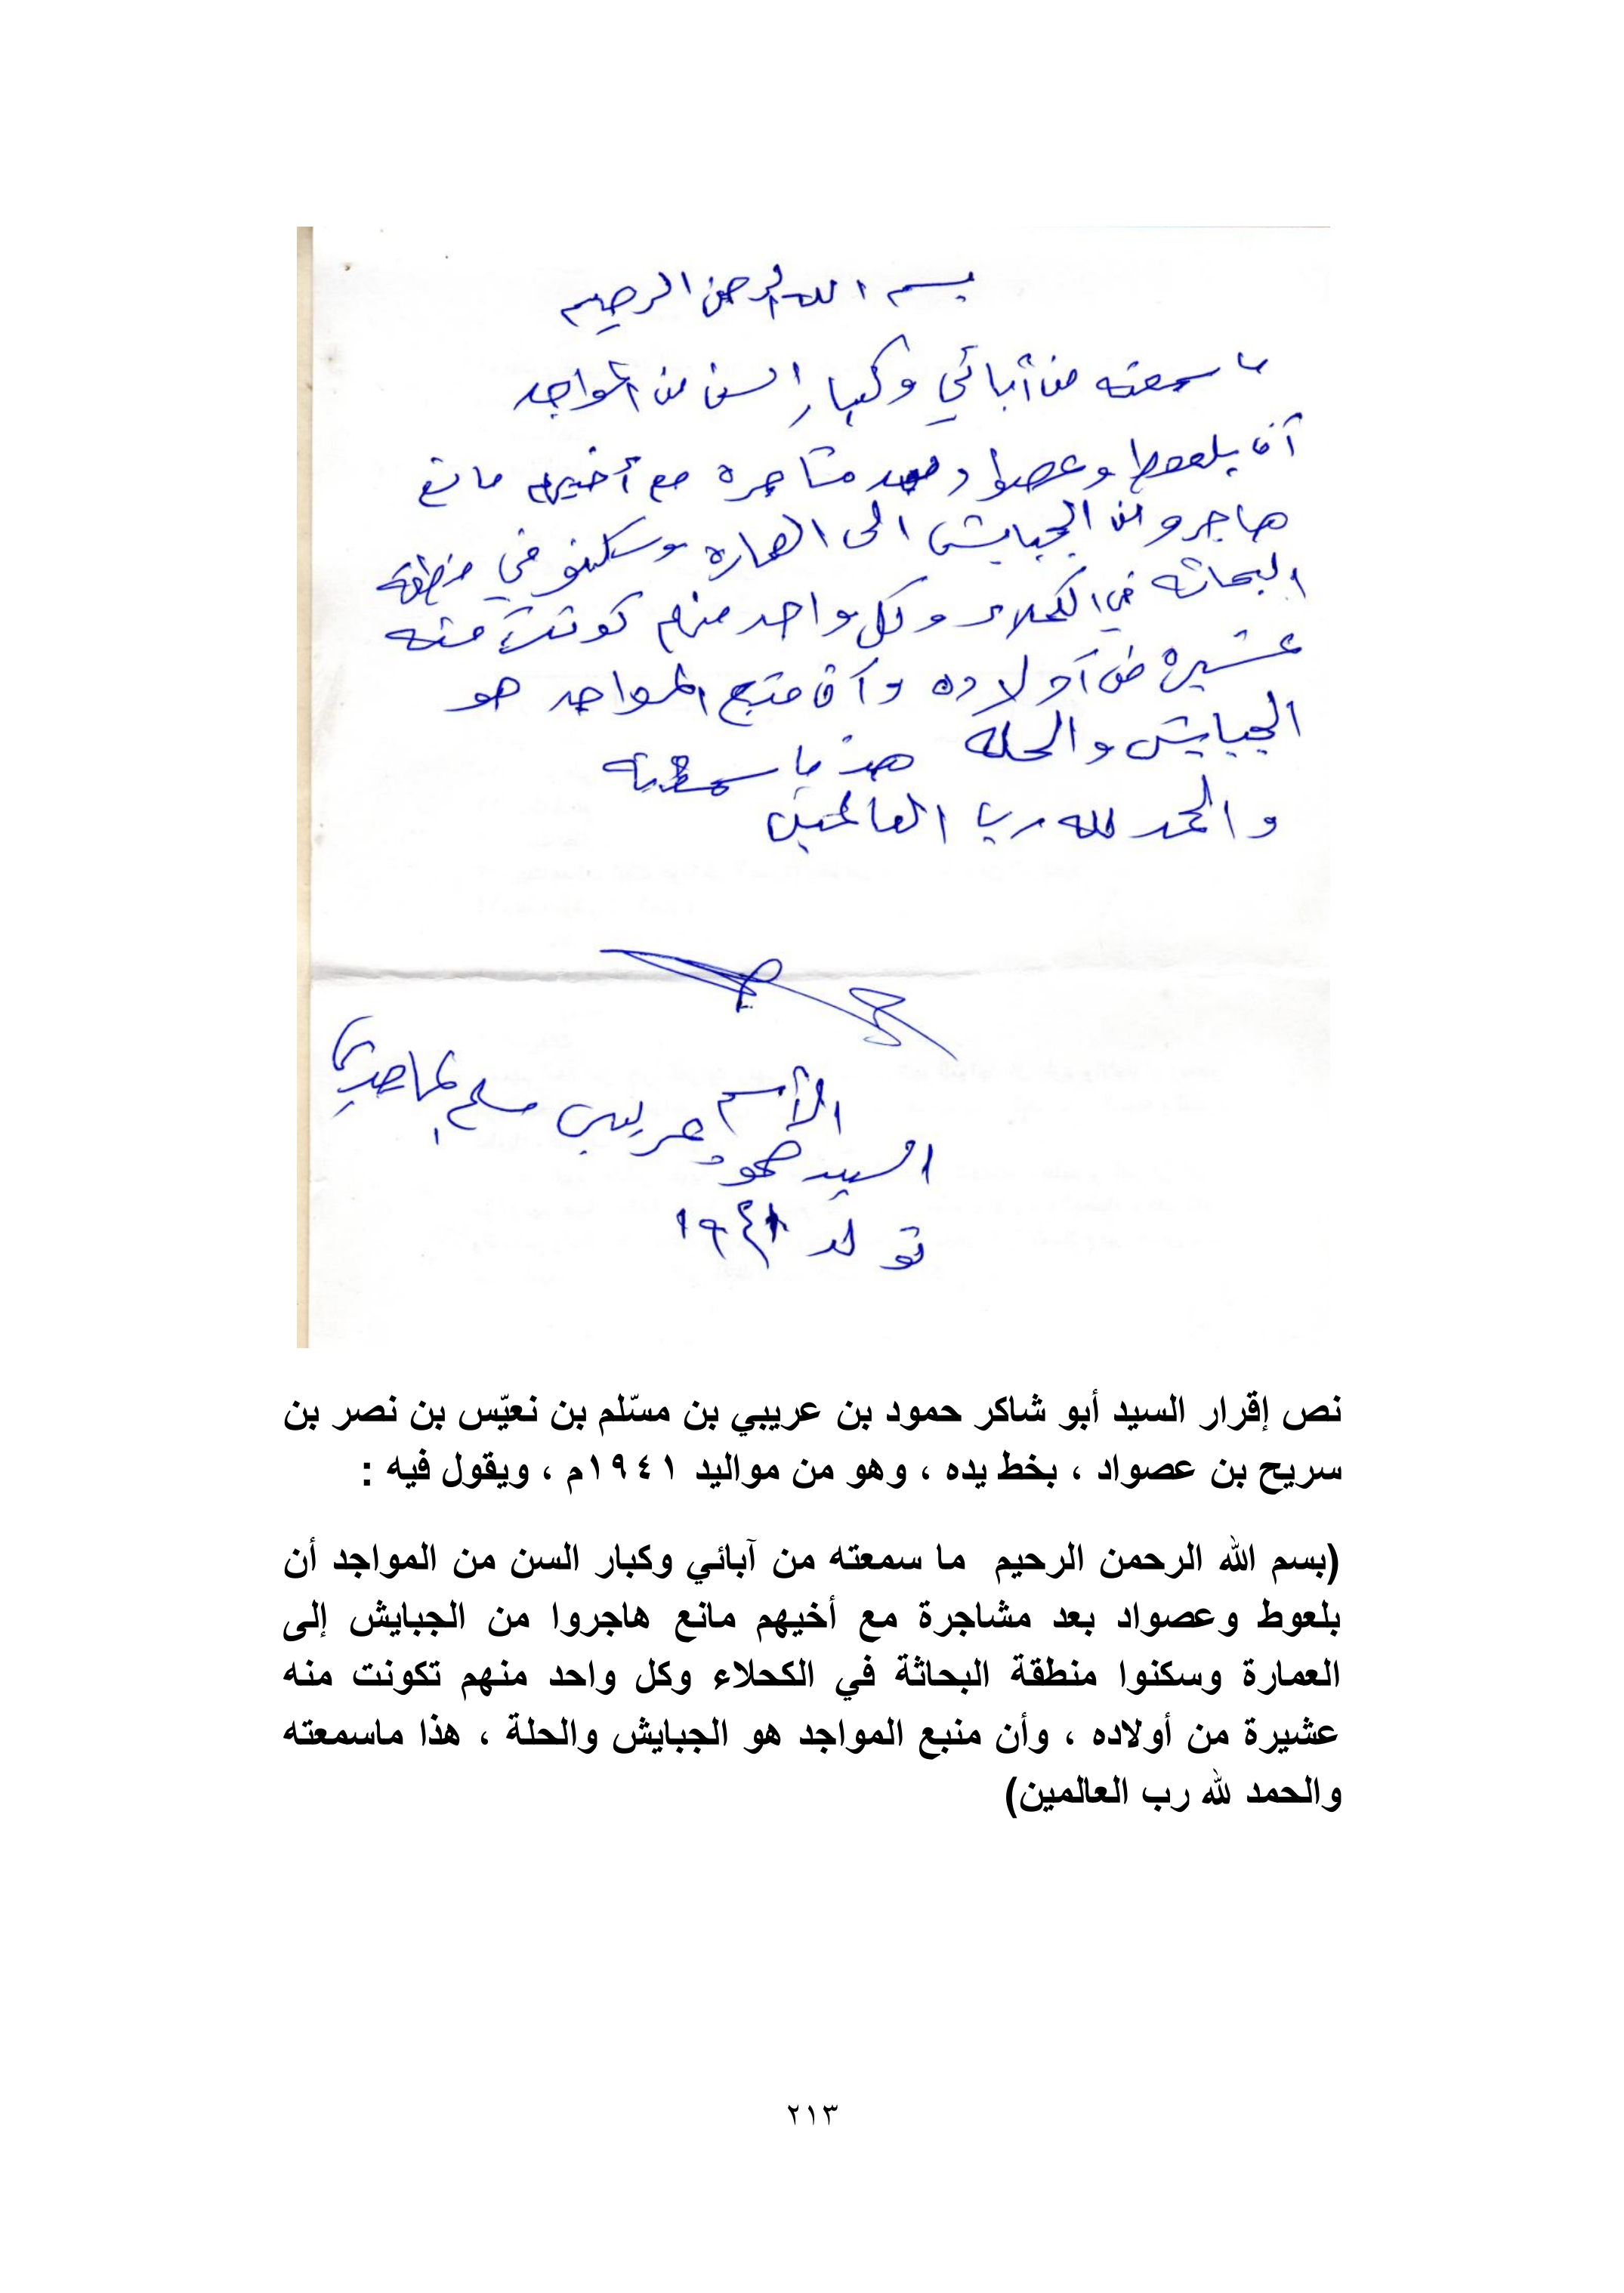 بسم الله الرحمن الرحيم
ما سمعته من أبائي وكبار السن من المواجد
أن بلعوط وعصواد بعد مشاجره مع أخيهم مانع
هاجرو من الجبايش الى العماره وسكنو في منطقة
البحاثه في الكحلاء وكل واحد منهم كونت منه
عشيره من أولاده وأن منبع المواجد هو
الجبايش والحله هذ ما سمعته
والحمد لله رب العالمين
الأسم
السيد حمود عريبي مسلم الماجدي
تولد ١٩٤١
نص إقرار السيد أبو شاكر حمود بن عريبي بن مسّلم بن نعيّس بن نصر بن
سريح بن عصواد ، بخط يده ، وهو من مواليد ١٩٤١م ، ويقول فيه :
(بسم الله الرحمن الرحيم ما سمعته من آبائي وكبار السن من المواجد أن
بلعوط وعصواد بعد مشاجرة مع أخيهم مانع هاجروا من الجبايش إلى
العمارة وسكنوا منطقة البحاثة في الكحلاء وكل واحد منهم تكونت منه
عشيرة من أولاده ، وأن منبع المواجد هو الجبايش والحلة ، هذا ماسمعته
والحمد لله رب العالمين)
٢١٣